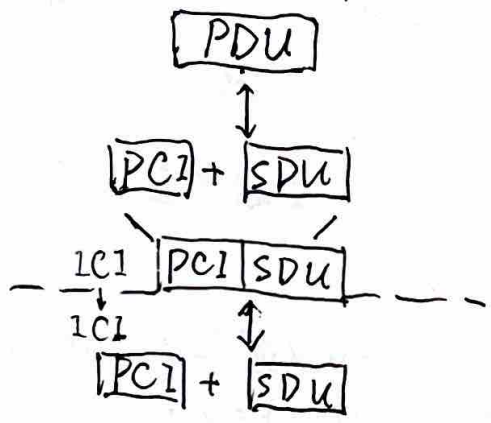 PDU
PCI + SDU
ICI PCI SDU
ICI
PCI + SDU